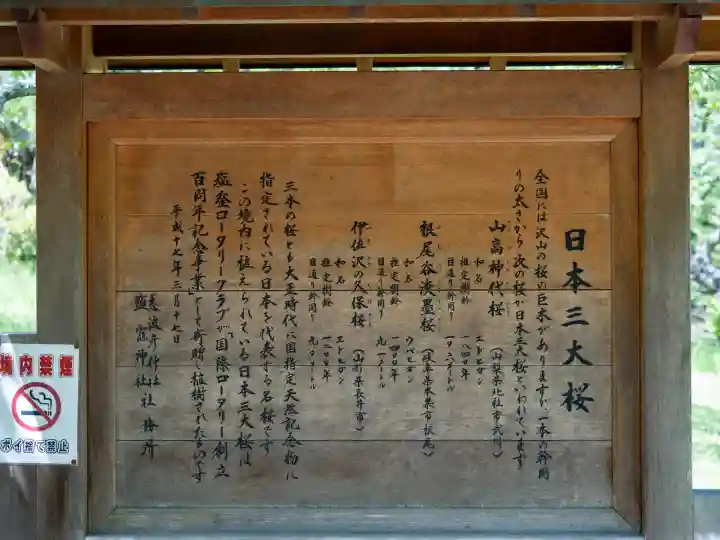 日本三大桜
全国には沢山の桜の巨木がありますが一本の幹周
りの太さから次の桜が日本三大桜といわれています
山高神代桜
(山梨県北杜市武川)
和名 エドヒガン
推定樹齢 一八四〇年
目通り幹周り 一〇・六メートル
根尾谷淡墨桜
(岐阜県本巣市根尾)
和名 ウバヒガン
推定樹齢 一四〇〇年
目通り幹周り 九・一メートル
伊佐沢の久保桜
(山形県長井市)
和名 エドヒガン
推定樹齢 一二〇〇年
目通り幹周り 九・〇メートル
三本の桜とも大正時代に国指定天然記念物に
指定されている日本を代表する名桜です
この境内に植えられている日本三大桜は
塩釜ロータリークラブが国際ロータリー創立
百周年記念事業として寄贈し植樹されたものです
平成十七年三月十七日
志波彦神社
鹽竈神社 社務所
境内禁煙
ポイ捨て禁止